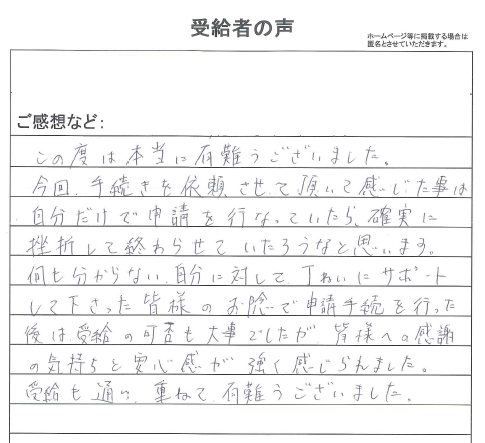 受給者の声
ホームページ等に掲載する場合は
匿名とさせていただきます。
ご感想など:
この度は本当に有難うございました。
今回、手続きを依頼させて頂いて感じた事は
自分だけで申請を行なっていたら、確実に
挫折して終わらせていたろうなと思います。
何も分からない自分に対して、丁ねいにサポート
して下さった皆様のお陰で申請手続を行った
後は、受給の可否も大事でしたが皆様への感謝
の気持ちと安心感が強く感じられました。
受給も通い、重ねて有難うございました。